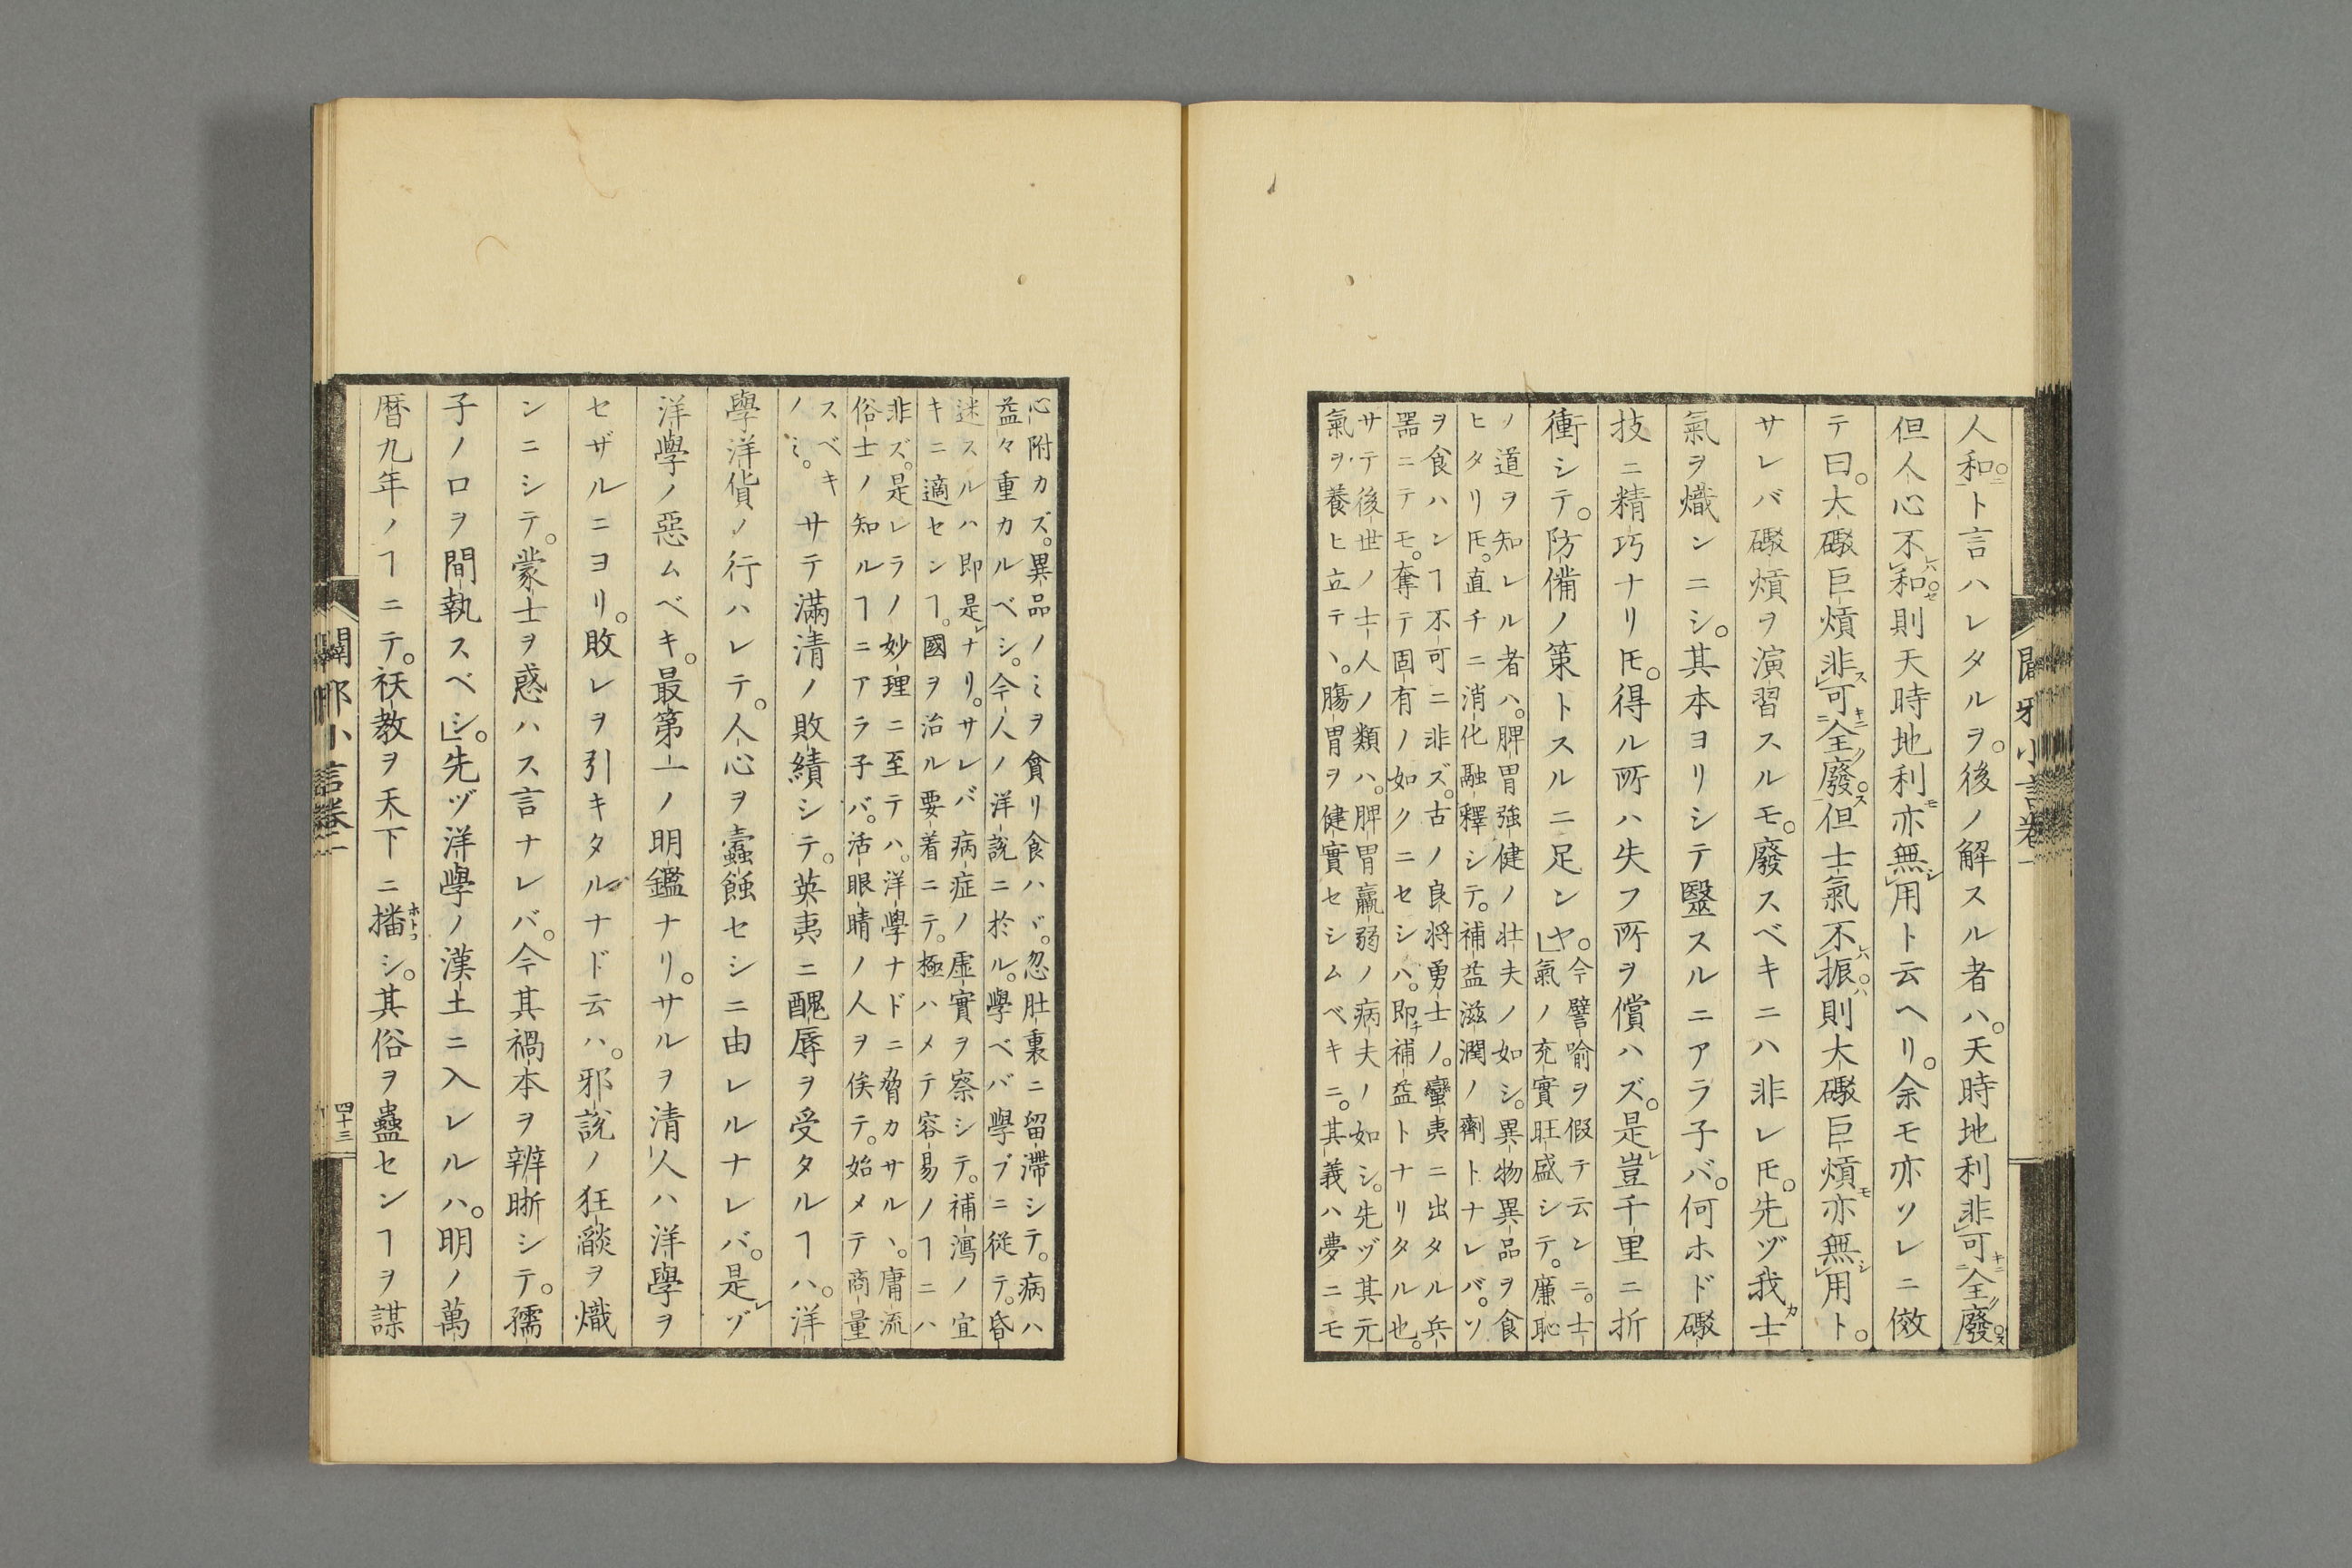 人和ニト言ハレタルヲ。後ノ解スル者ハ。天時地利非可キニ全ノ廢ス。
但人心不ハ和セ則天時地利モ亦無シ用ト云ヘリ。余モ亦ソレニ傚
テ曰。大礮巨熕非ス可キニ全ノ廢ス。但士氣不ハ振ハ則大礮巨熕モ亦無シ用ト。
サレバ礮熕ヲ演習スルモ。廢スベキニハ非レ𪜈。先ヅ我カ士
氣ヲ熾ンニシ。其本ヨリシテ毉スルニアラ子バ。何ホド礮
技ニ精巧ナリ𪜈。得ル所ハ失フ所ヲ償ハズ。是レ豈千里ニ折
衝シテ。防備ノ策トスルニ足ンヤ。今譬喩ヲ假テ云ンニ。士
氣ノ充實旺盛シテ。廉恥
ノ道ヲ知レル者ハ。脾胃強健ノ壮夫ノ如シ。異物異品ヲ食
ヒタリ𪜈。直チニ消化融釋シテ。補益滋潤ノ劑トナレバ。ソ
ヲ食ハンヿ不可ニ非ズ。古ノ良将勇士ノ。蠻夷ニ出タル兵
噐ニテモ。奪テ固有ノ如クニセシハ。即チ補益トナリタル也。
サテ後世ノ士人ノ類ハ。脾胃羸弱ノ病夫ノ如シ。先ヅ其元
氣ヲ養ヒ立テヽ。膓胃ヲ健實セシムベキニ。其義ハ夢ニモ
闢邪小言卷二
心附カズ。異品ノミヲ貪リ食ハヾ。忽肚裏ニ留滯シテ。病ハ
益々重カルベシ。今人ノ洋説ニ於ル。學ベバ學ブニ従テ。昏
迷スルハ即是レナリ。サレバ病症ノ虚實ヲ察シテ。補瀉ノ宜
キニ適センヿ。國ヲ治ル要着ニテ。極ハメテ容易ノヿニハ
非ズ。是レラノ妙理ニ至テハ。洋學ナドニ脅カサルヽ。庸流
俗士ノ知ルヿニアラ子バ。活眼睛ノ人ヲ俟テ。始メテ商量
スベキ
ノミ。サテ滿清ノ敗績シテ。英夷ニ醜辱ヲ受タルヿハ。洋
學洋貨ノ行ハレテ。人心ヲ蠧蝕セシニ由レルナレバ。是レヅ
洋學ノ惡ムベキ。最第一ノ明鑑ナリ。サルヲ清人ハ洋學ヲ
セザルニヨリ。敗レヲ引キタルナド云ハ。邪説ノ狂燄ヲ熾
ンニシテ。蒙士ヲ惑ハス言ナレバ。今其禍本ヲ辨晰シテ。孺
子ノ口ヲ間執スベシ。先ヅ洋學ノ漢土ニ入レルハ。明ノ萬
暦九年ノヿニテ。祅教ヲ天下ニ播ホトコシ。其俗ヲ蠱センヿヲ謀
闢邪小言卷二
四十三